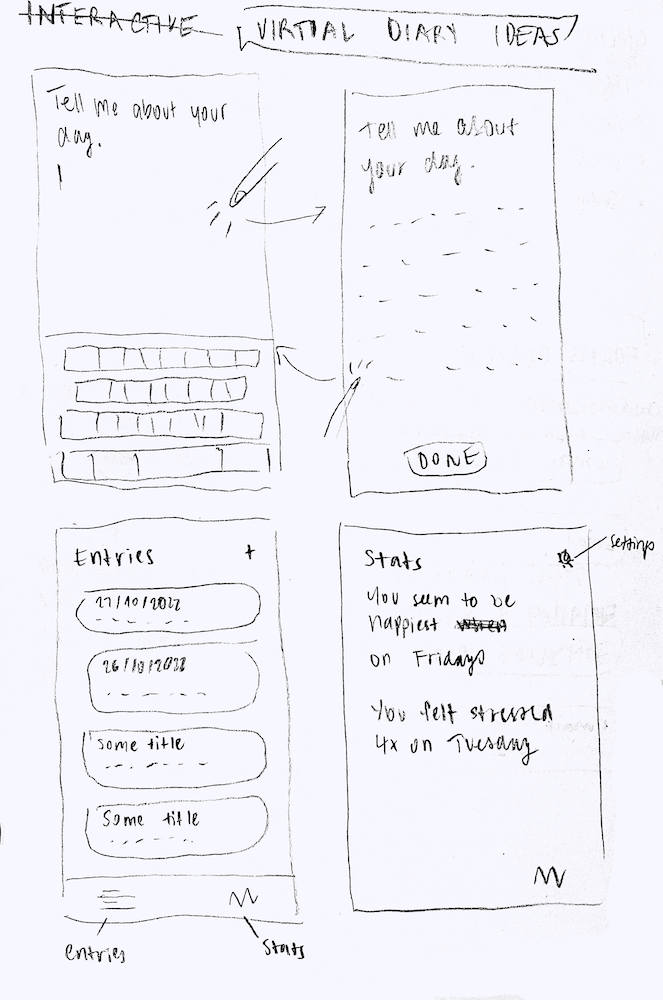 INTERACTIVE
VIRTUAL DIARY IDEAS
Tell me about your
day.
Tell me about
your day.
DONE
Entries +
27/10/2022
26/10/2022
Some title
Some title
entries
Stats
Stats
settings
You seem to be
happiest when
on Fridays
You felt stressed
4x on Tuesday